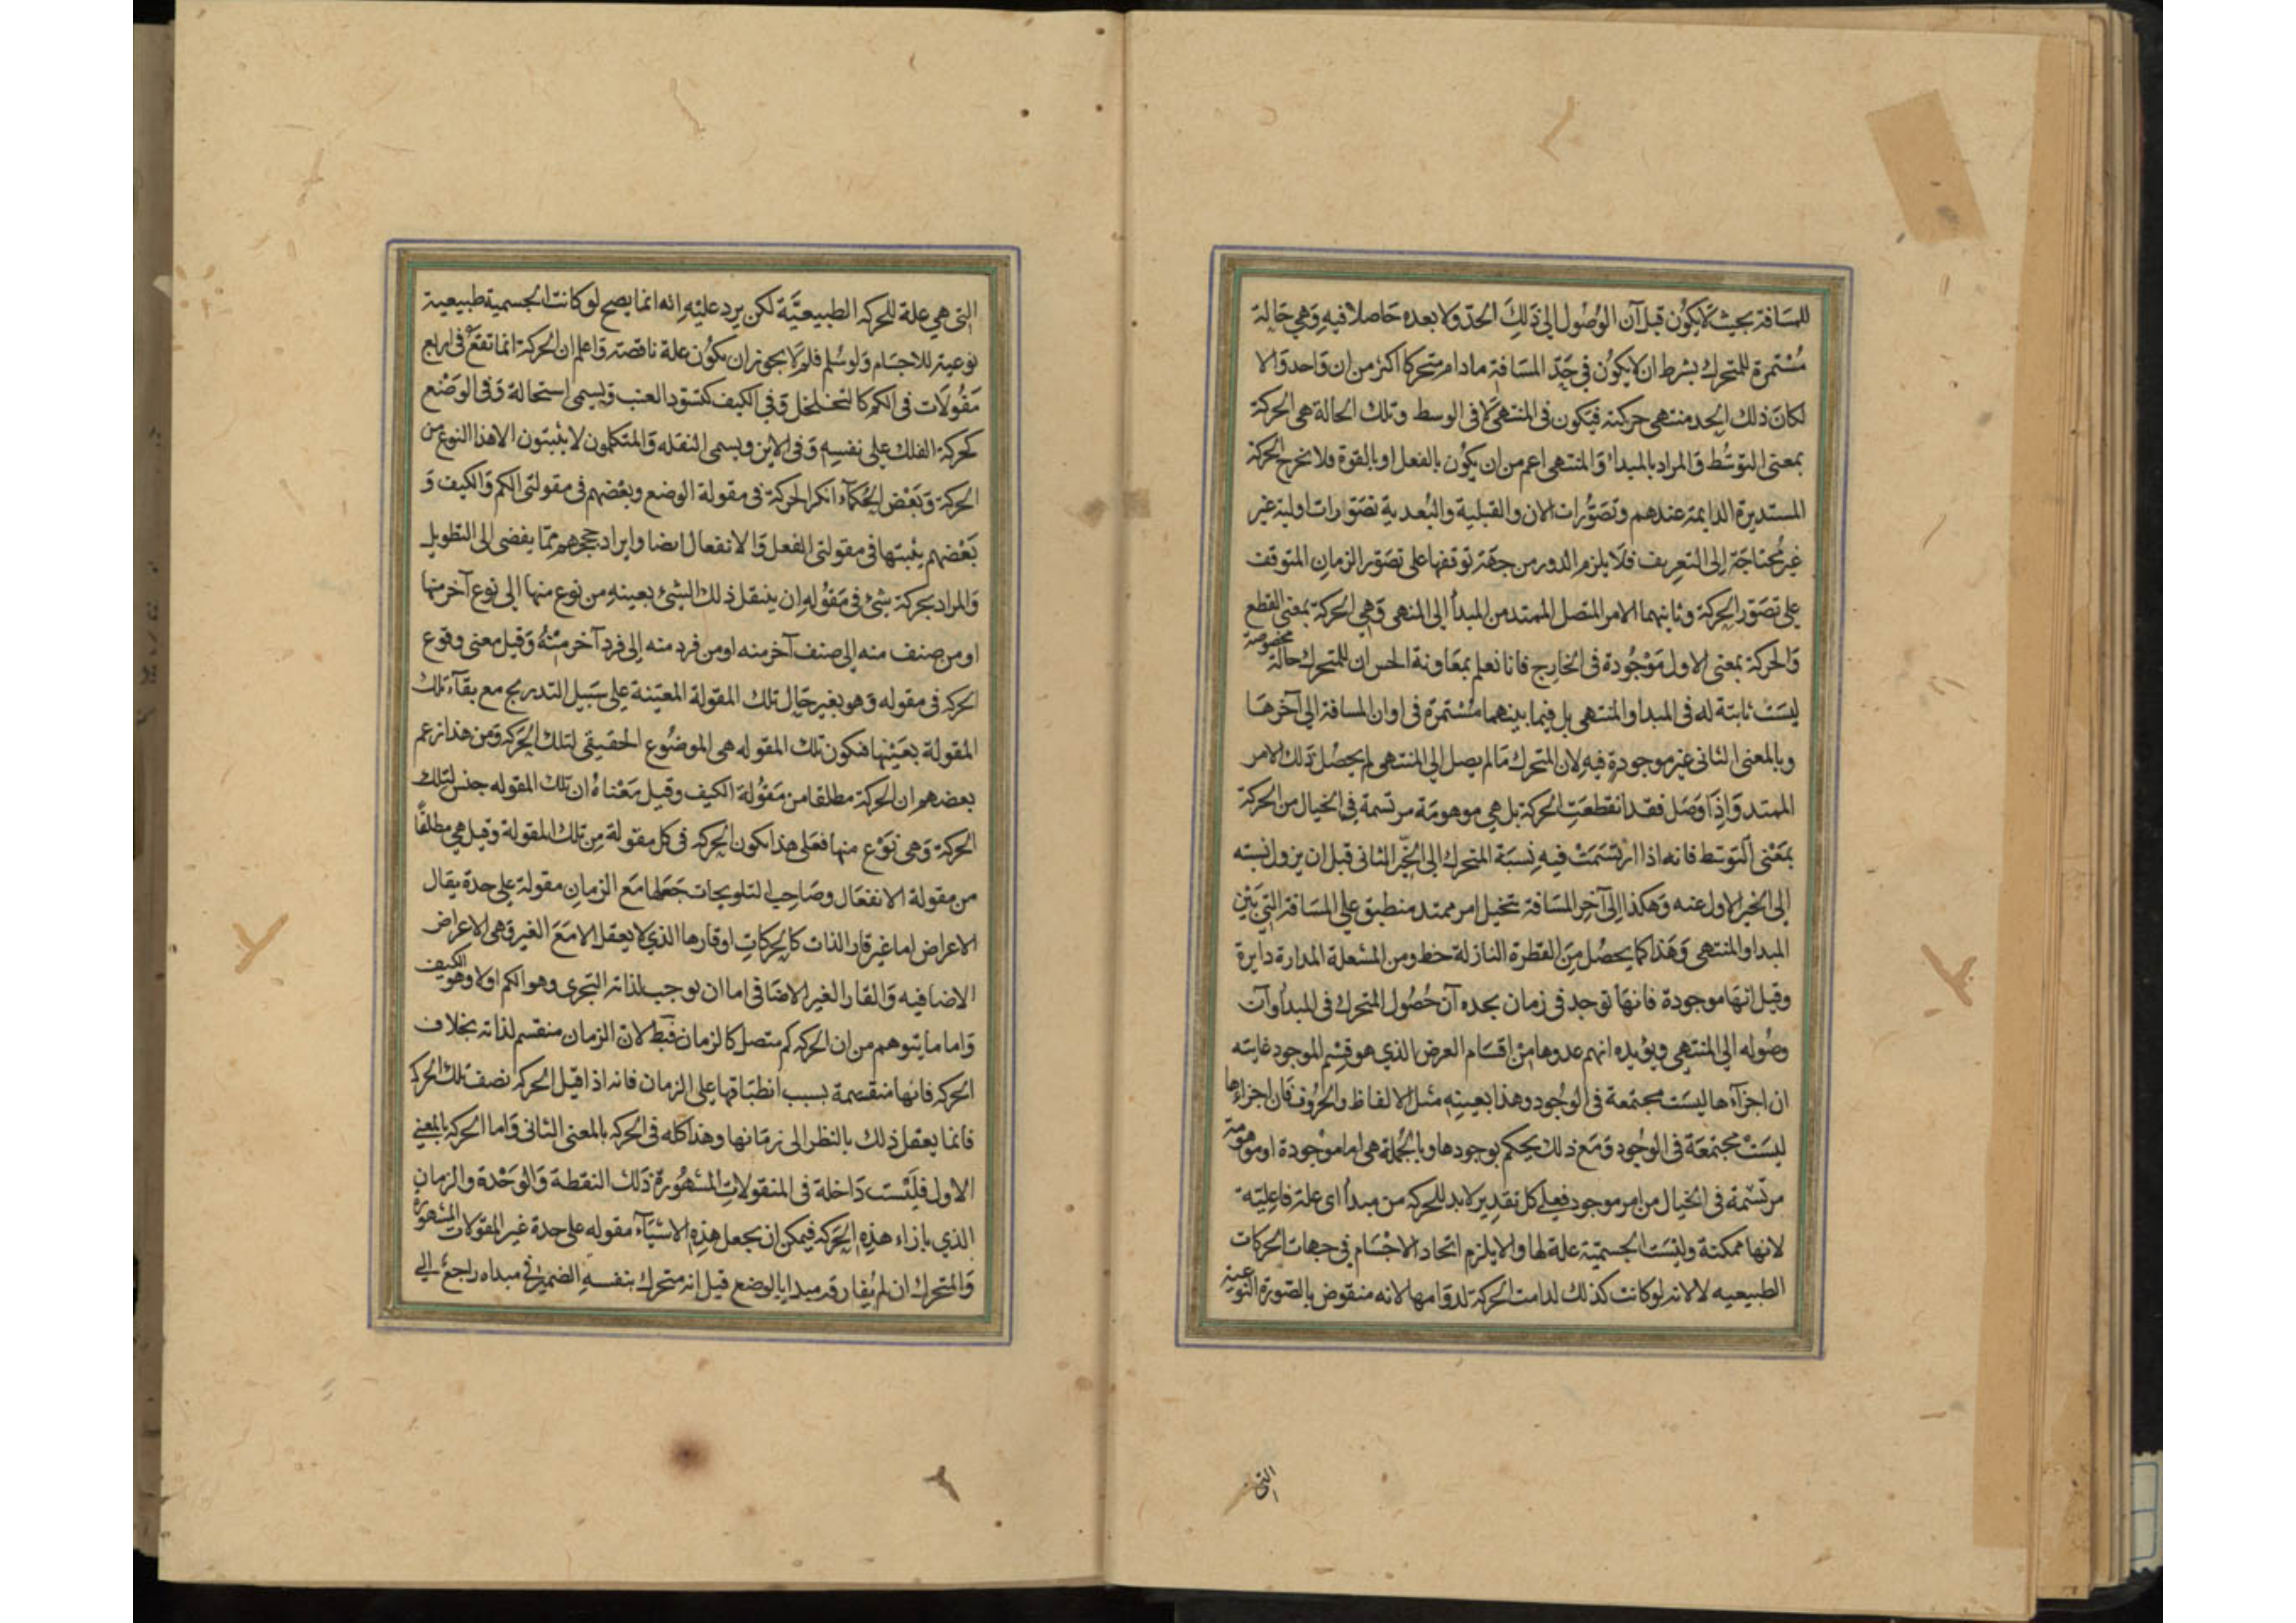 للمسافة بحيث لا يكون قبل آن الوصول الى ذلك الحد ولا بعده حاصلا فيه وهي حالة
مستمرة للمتحرك بشرط ان لا يكون في حد المسافة ما دام متحركا اكثر من ان واحد والا
لكان ذلك الحد منتهى حركته فيكون في المنتهى لا في الوسط وتلك الحالة هي الحركة
بمعنى التوسط والمراد بالمبدا والمنتهى اعم من ان يكون بالفعل او بالقوة فلا تخرج الحركة
المستديرة الدايمة عندهم وتصورات الان والقبلية والبعدية تصورات اولية غير
غير محتاجة الى التعريف فلا يلزم الدور من جهة توقفها على تصور الزمان المتوقف
على تصور الحركة وثانيهما الامر المتصل الممتد من المبدأ الى المنتهى وهي الحركة بمعنى القطع
والحركة بمعنى الاول موجودة في الخارج فانا نعلم بمعاونة الحس ان للمتحرك حالة مخصوصة
ليست ثابتة له في المبدا والمنتهى بل فيما بينهما مستمرة في اوان المسافة الى آخرها
وبالمعنى الثانى غير موجودة فيه لان المتحرك ما لم يصل الى المنتهى لم يحصل ذلك الامر
الممتد واذا وصل فقد انقطعت الحركة بل هي موهومة مرتسمة في الخيال من الحركة
بمعنى التوسط فانه اذا ارتسمت فيه نسبة المتحرك الى الخير الثانى قبل ان يزول نسبته
الى الخير الاول عنه وهكذا الى آخر المسافة يتخيل امر ممتد منطبق على المسافة التي بين
المبدا والمنتهى وهذا كما يحصل من القطرة النازلة خط ومن المشعلة المدارة دايرة
وقيل انها موجودة فانها توجد في زمان يحده آن حصول المتحرك في المبدأ وآن
وصوله الى المنتهى ويؤيده انهم عدوها من اقسام العرض الذي هو قسم الموجود غايته
ان اجزآءها ليست مجتمعة في الوجود وهذا بعينه مثل الالفاظ والحروف فان اجزاءها
ليست مجتمعة في الوجود ومع ذلك يحكم بوجودها وبالجملة هي اما موجودة او موهومة
مرتسمة في الخيال من امر موجود فعلى كل تقدير لابد للحركة من مبدأ اى علة فاعلية
لانها ممكنة وليست الجسمية علة لها والا يلزم اتحاد الاجسام في جهات الحركات
الطبيعيه لا لانه لو كانت كذلك لدامت الحركة لدوامها لانه منقوض بالصورة النوعية
التى
التى هي علة للحركه الطبيعيَّة لكن يرد عليه انه انما يصح لو كانت الجسمية طبيعية
نوعية للاجسام ولو سلم فلم لا يجوز ان يكون علة ناقصة واعلم ان الحركة انما تقع في اربع
مقولات في الكم كالتخلخل وفي الكيف كتسود العنب ويسمى استحالة وفى الوضع
كحركة الفلك على نفسه وفى الاين ويسمى النقله والمتكلمون لا يثبتون الا هذا النوع من
الحركة وبعض الحكماء انكر الحركة في مقولة الوضع وبعضهم في مقولتى الكم والكيف و
بعضهم يثبتها في مقولتى الفعل والانفعال ايضا وايراد حججهم مما يفضى الى التطويل
والمراد بحركة شئ في مقوله ان ينتقل ذلك الشئ بعينه من نوع منها الى نوع آخر منها
او من صنف منه الى صنف آخر منه او من فرد منه الى فرد آخر منه وقيل معنى وقوع
الحركه في مقوله وهو بغير حال تلك المقولة المعينة على سبيل التدريج مع بقآء تلك
المقولة بعينها فتكون تلك المقوله هي الموضوع الحقيقى لتلك الحركه ومن هذا زعم
بعضهم ان الحركة مطلقا من مقولة الكيف وقيل معناه ان تلك المقوله جنس لتلك
الحركة وهى نوع منها فعلى هذا يكون الحركه في كل مقولة من تلك المقولة وقيل هي مطلقًا
من مقولة الانفعال وصاحب التلويحات جعلها مع الزمان مقولة على حدة يقال
الاعراض اما غير قار الذات كالحركات او قارها الذي لا يعقل الا مع الغير وهى الاعراض
الاضافيه والقار الغير الاضافى اما ان يوجب لذاته التجزى وهو الكم اولا وهو الكيف
واما ما يتوهم من ان الحركه كم متصل كالزمان فبط لان الزمان منقسم لذاته بخلاف
الحركه فانها منقسمة بسبب انطباقها على الزمان فانه اذا قيل الحركه نصف تلك الحركه
فانما يعقل ذلك بالنظر الى زمانها وهذا كله في الحركه بالمعنى الثانى واما الحركه بالمعنى
الاول فليست داخلة في المنقولات المشهورة ذلك النقطة والوحدة والزمان
الذي بازاء هذه الحركه فيمكن ان يجعل هذه الاشيآء مقوله على حدة غير المقولات المشهورة
والمتحرك ان لم يفارق مبدا بالوضع قيل انه متحرك بنفسه الضمير في مبداه راجع الى